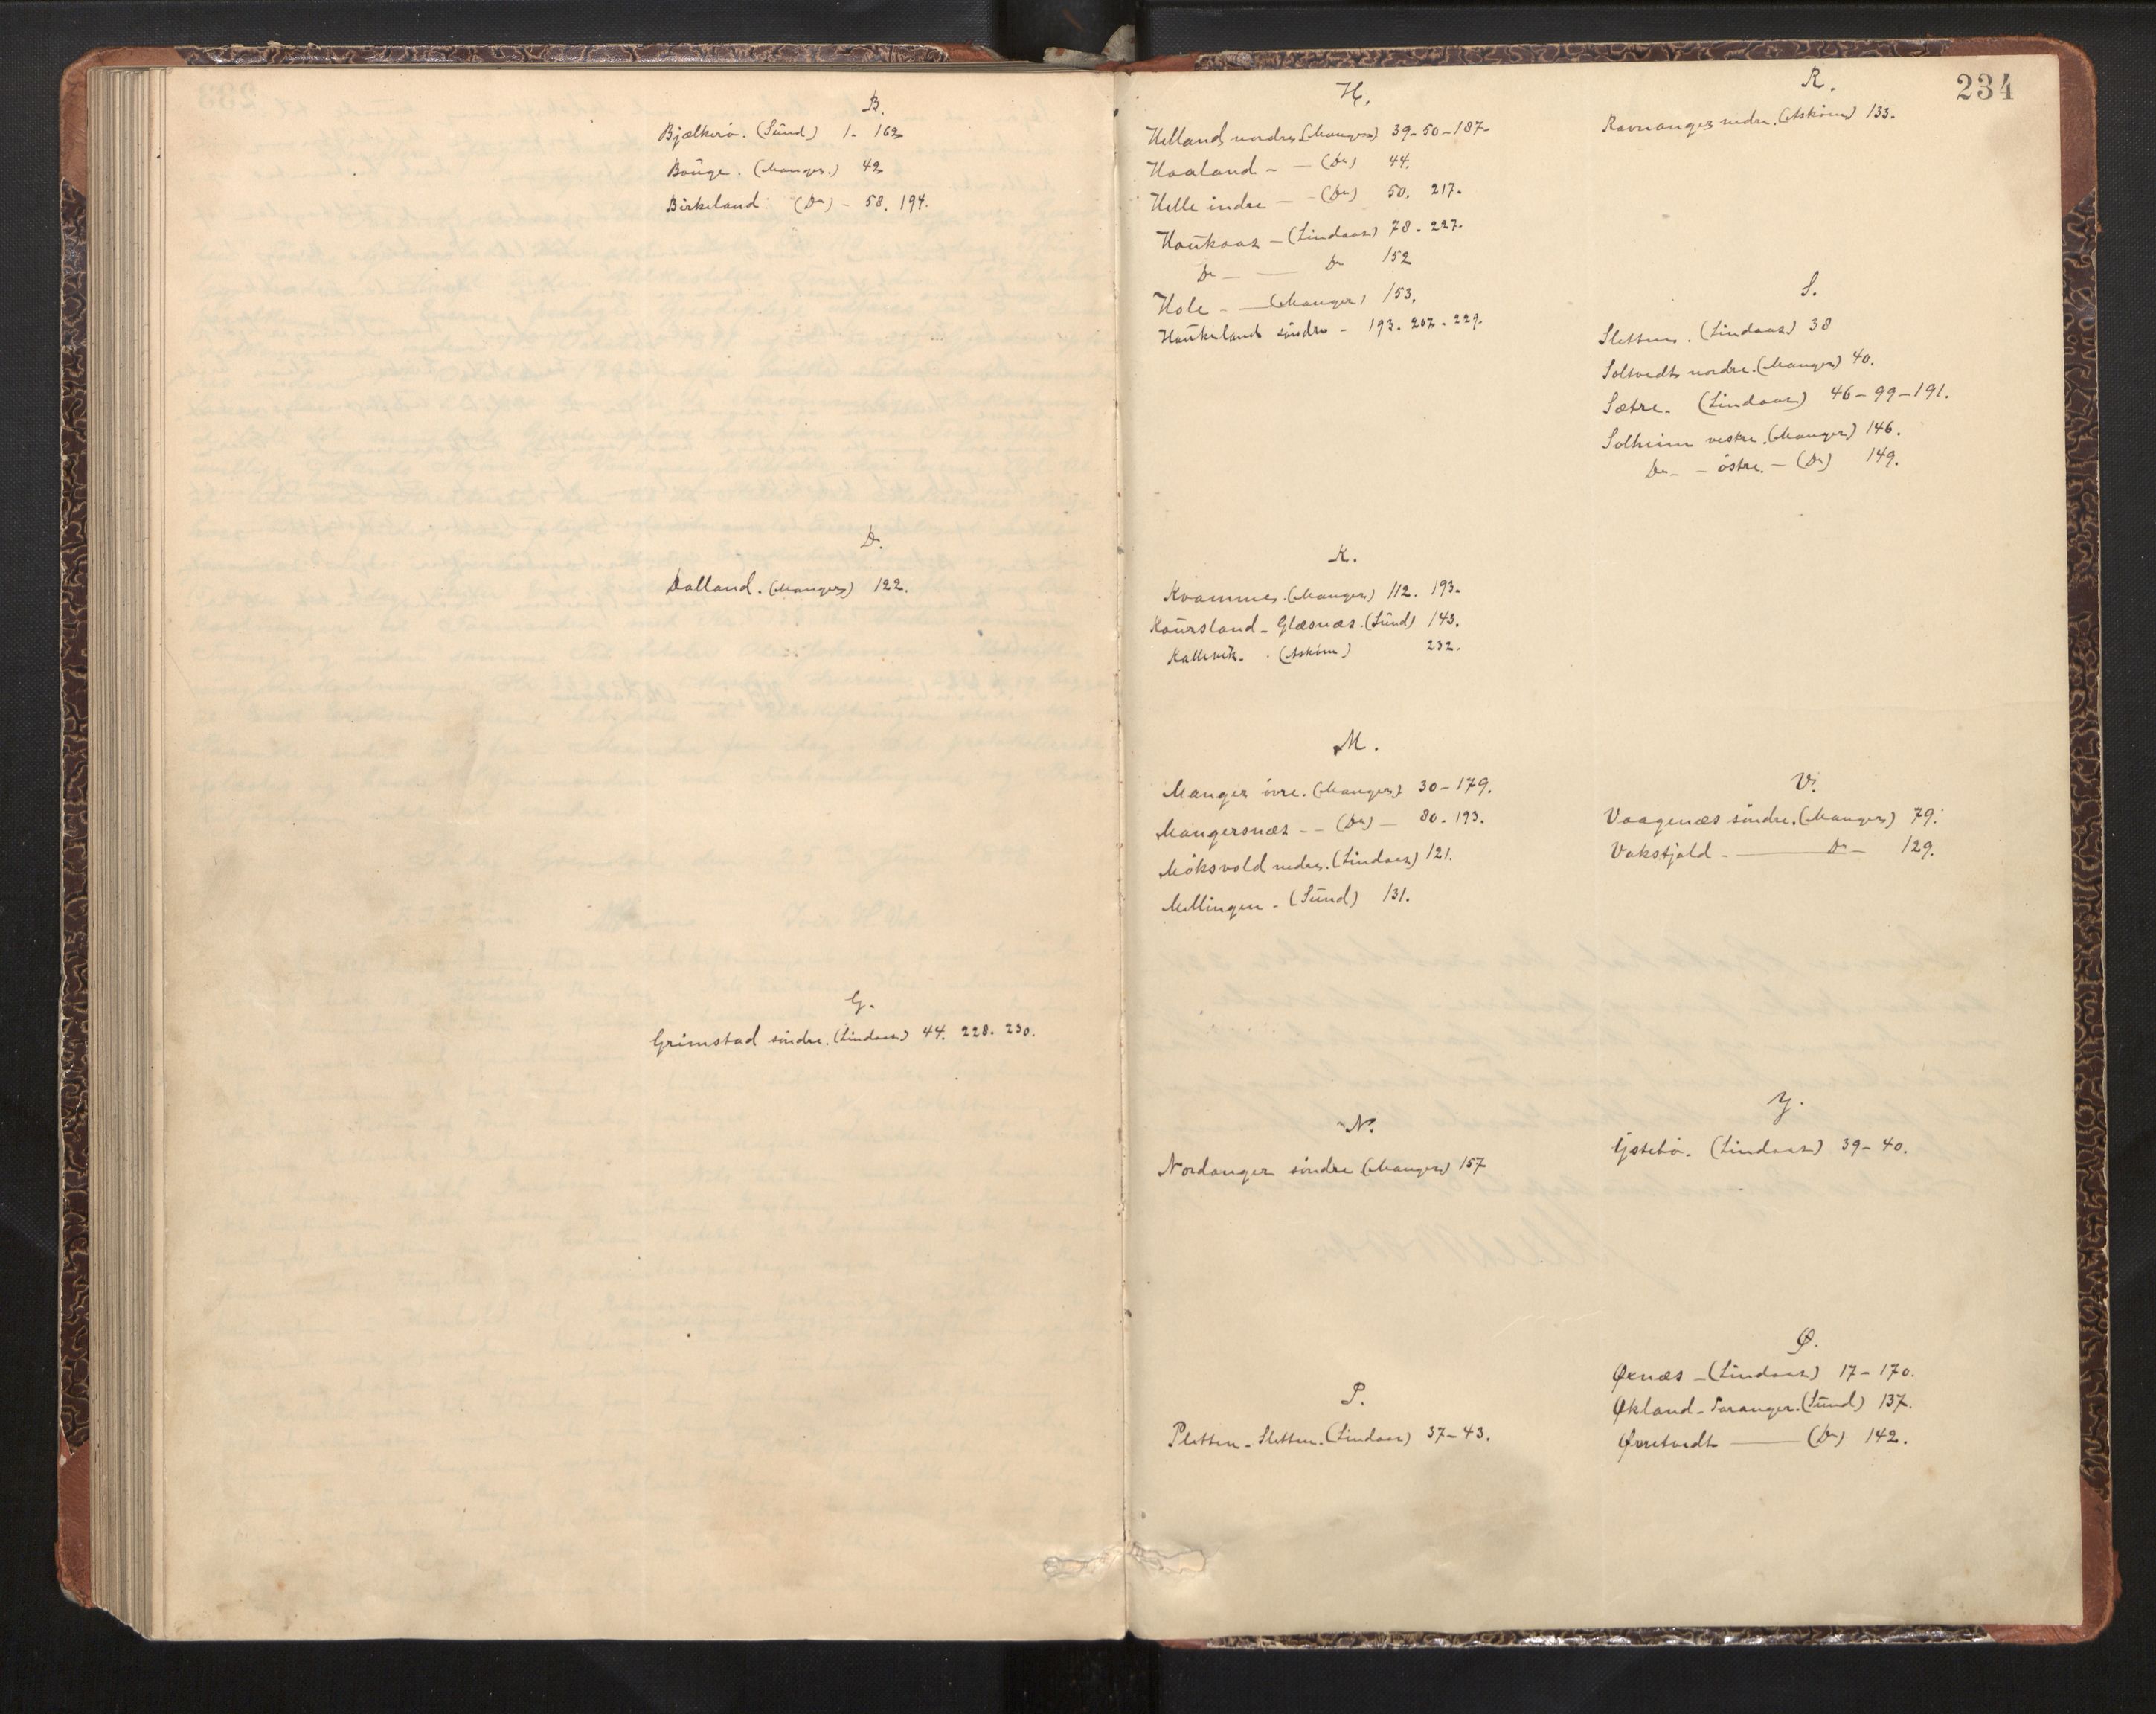 B.
Bjælkerö. (Sünd) 1. 162
Böüge. (Manger.) 42
Birkeland. (Do) - 58. 194.
D.
Dalland. (Manger) 122.
G.
Grimstad söndre. (Lindaas) 44. 228. 230.
234
H.
Helland nordre (Manger) 39-50-187-
Haaland - - (Do) 44.
Helle indre - - (Do) 50. 217.
Haükaas - (Lindaas) 78. 227.
Do - - Do 152
Hole - - (Manger) 153.
Haükeland söndre - 193. 207. 229.
K.
Kvammes. (Manger) 112. 193.
Kaürsland - Glæsnæs. (Sünd) 143.
Kallevik. (Asköen) 232.
M.
Manger övre. (Manger) 30-179.
Mangersnæs - - (Do) - 80. 193.
Möksvold nedre. (Lindaas) 121.
Mellingen - (Sünd) 131.
N.
Nordanger söndre (Manger) 157
P.
Pletten - Sletten. (Lindaas) 37-43.
R.
Ravnanger nedre. (Asköen) 133.
S.
Sletten. (Lindaas) 38
Soltvedt nordre. (Manger) 40.
Sætre. (Lindaas) 46-99-191.
Solheim vestre. (Manger) 146.
Do - - östre. - (Do) 149.
V.
Vaagenæs söndre. (Manger) 79.
Vakstjold - Do - 129.
Y.
Ystebö. (Lindaas) 39-40.
Ø.
Øxnæs - (Lindaas) 17-170.
Økland - Toranger. (Sünd) 137.
Øvretvedt - (Do) 142.